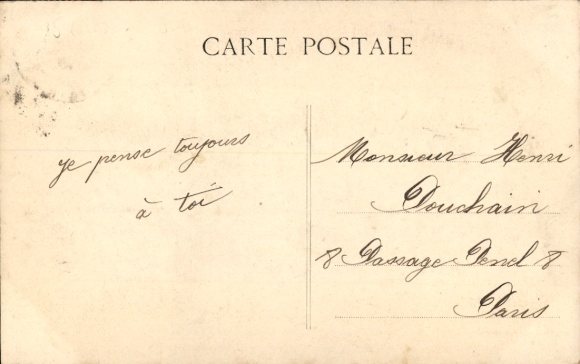 CARTE POSTALE
je pense toujours
à toi
Monsieur Henri
Douchain
8 Passage Penel 8
Paris